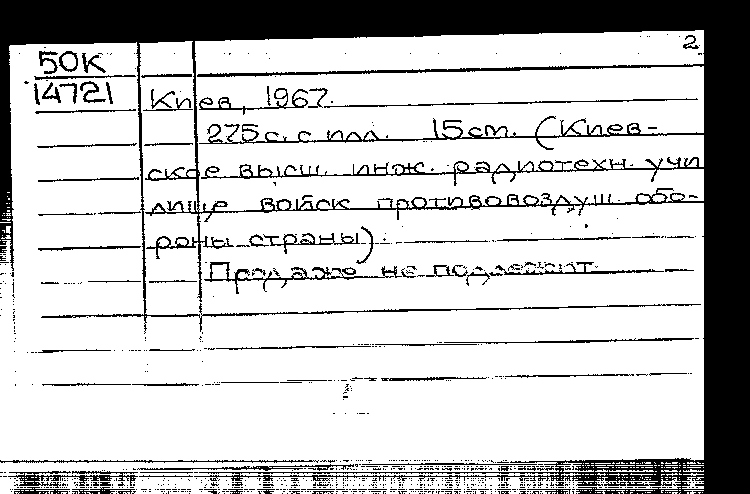 2
50К
14721
Киев, 1967.
275 с. с илл. 15 см. (Киев-
ское высш. инж. радиотехн. учи
лище войск противовоздуш. обо-
роны страны).
Продаже не подлежит.